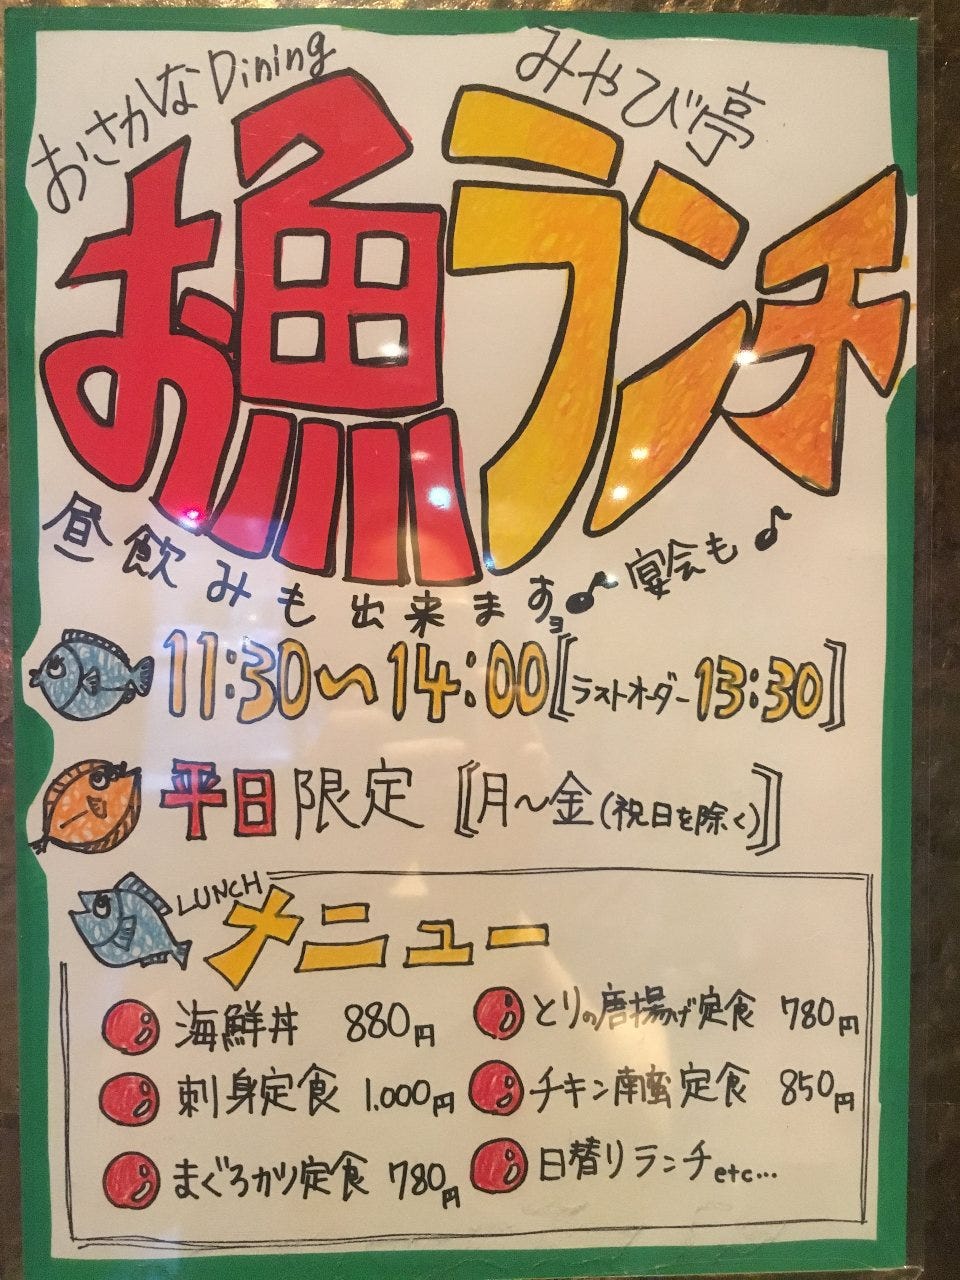 おさかなDining
みやび亭
お魚ランチ
昼飲みも出来ますョ♪宴会も♪
11:30〜14:00[ラストオーダー13:30]
平日限定[月〜金(祝日を除く)]
LUNCH
メニュー
海鮮丼 880円
とりの唐揚げ定食 780円
刺身定食 1.000円
チキン南蛮定食 850円
まぐろカツ定食 780円
日替りランチetc...